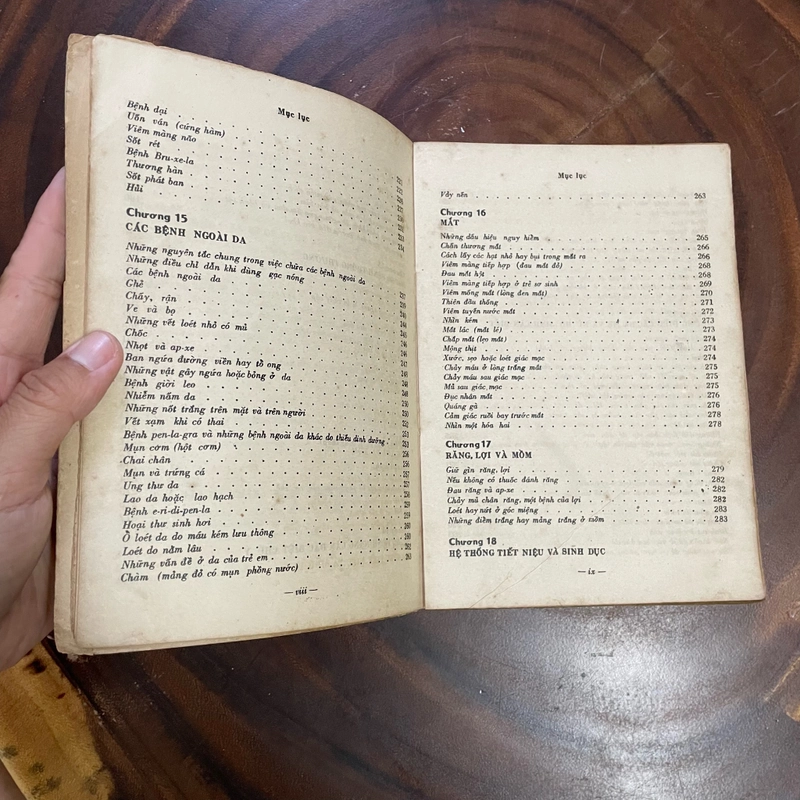 Mục lục
Bệnh dại
Uốn ván (cứng hàm)
Viêm màng não
Sốt rét
Bệnh Bru-xe-la
Thương hàn
Sốt phát ban
Hủi
Chương 15
CÁC BỆNH NGOÀI DA
Những nguyên tắc chung trong việc chữa các bệnh ngoài da
Những điều chỉ dẫn khi dùng gạc nóng
Các bệnh ngoài da
Ghẻ
Chấy, rận
Ve và bọ
Những vết loét nhỏ có mủ
Chốc
Nhọt và ap-xe
Ban ngứa đường viền hay tổ ong
Những vật gây ngứa hoặc bỏng ở da
Bệnh giời leo
Nhiễm nấm da
Những nốt trắng trên mặt và trên người
Vết xạm khi có thai
Bệnh pen-la-gra và những bệnh ngoài da khác do thiếu dinh dưỡng
Mụn cơm (hột cơm)
Chai chân
Mụn và trứng cá
Ung thư da
Lao da hoặc lao hạch
Bệnh e-ri-di-pen-la
Hoại thư sinh hơi
Ổ loét da do máu kém lưu thông
Loét do nằm lâu
Những vấn đề ở da của trẻ em
Chàm (mảng đỏ có mụn phồng nước)
— viii —
Mục lục
Vảy nến 263
Chương 16
MẮT
Những dấu hiệu nguy hiểm 265
Chấn thương mắt 266
Cách lấy các hạt nhỏ hay bụi trong mắt ra 266
Viêm màng tiếp hợp (đau mắt đỏ) 268
Đau mắt hột 268
Viêm màng tiếp hợp ở trẻ sơ sinh 269
Viêm mống mắt (lòng đen mắt) 270
Thiên đầu thống 271
Viêm tuyến nước mắt 272
Nhìn kém 273
Mắt lác (mắt lé) 273
Chắp mắt (lẹo mắt) 274
Mộng thịt 274
Xước, sẹo hoặc loét giác mạc 274
Chảy máu ở lòng trắng mắt 275
Chảy máu sau giác mạc 275
Mủ sau giác mạc 275
Đục nhân mắt 276
Quáng gà 276
Cảm giác ruồi bay trước mắt 278
Nhìn một hóa hai 278
Chương 17
RĂNG, LỢI VÀ MỒM
Giữ gìn răng, lợi 279
Nếu không có thuốc đánh răng 282
Đau răng và ap-xe 282
Chảy mủ chân răng, một bệnh của lợi 282
Loét hay nứt ở góc miệng 283
Những điểm trắng hay mảng trắng ở mồm 283
Chương 18
HỆ THỐNG TIẾT NIỆU VÀ SINH DỤC
— ix —